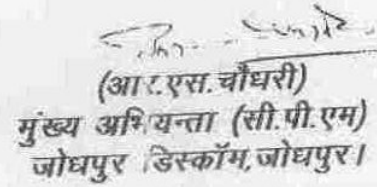 (आर.एस.चौधरी)
मुंख्य अभियन्ता (सी.पी.एम)
जोधपुर डिस्कॉम,जोधपुर।